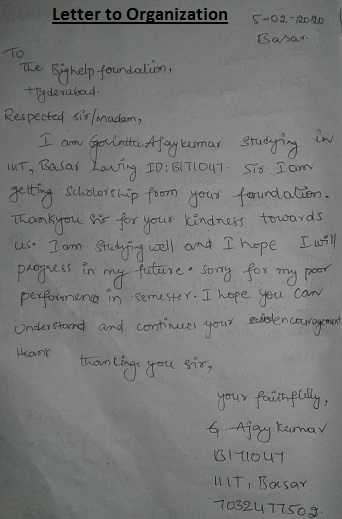 Letter to Organization
5-02-2020
Basar.
To
The Bighelp foundation,
Hyderabad.
Respected sir/madam,
I am Govintta Ajay kumar studying in
IIIT, Basar having ID: B171047. Sir I am
getting Scholorship from your foundation.
Thankyou sir for your kindness towards
us. I am studying well and I hope I will
progress in my future. sorry for my poor
performenc in semester. I hope you can
understand and continues your encouragement
thanking you sir,
your faithfully,
G. Ajay kumar
B171047
IIIT, Basar
7032477502.